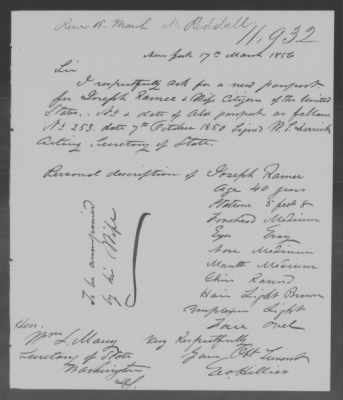 11,932
New York 17th March 1856
Sir
I respectfully ask for a new passport
for Joseph Ramee & Wife Citizen of the United
States. No & date of Old passport as follows
No 253. date 7th October 1850 signed W. S. Derrick
Acting Secretary of State.
Personal description of Joseph Ramee
Age 40 years
Stature 5 feet 8
Forehead Medium
Eyes Gray
Nose Medium
Mouth Medium
Chin Round
Hair Light Brown
Complexion Light
Face Oval
To be accompanied
by his Wife
Hon.
Wm L. Marcy
Secretary of State
Washington
Very Respectfully
Your Obt Servant